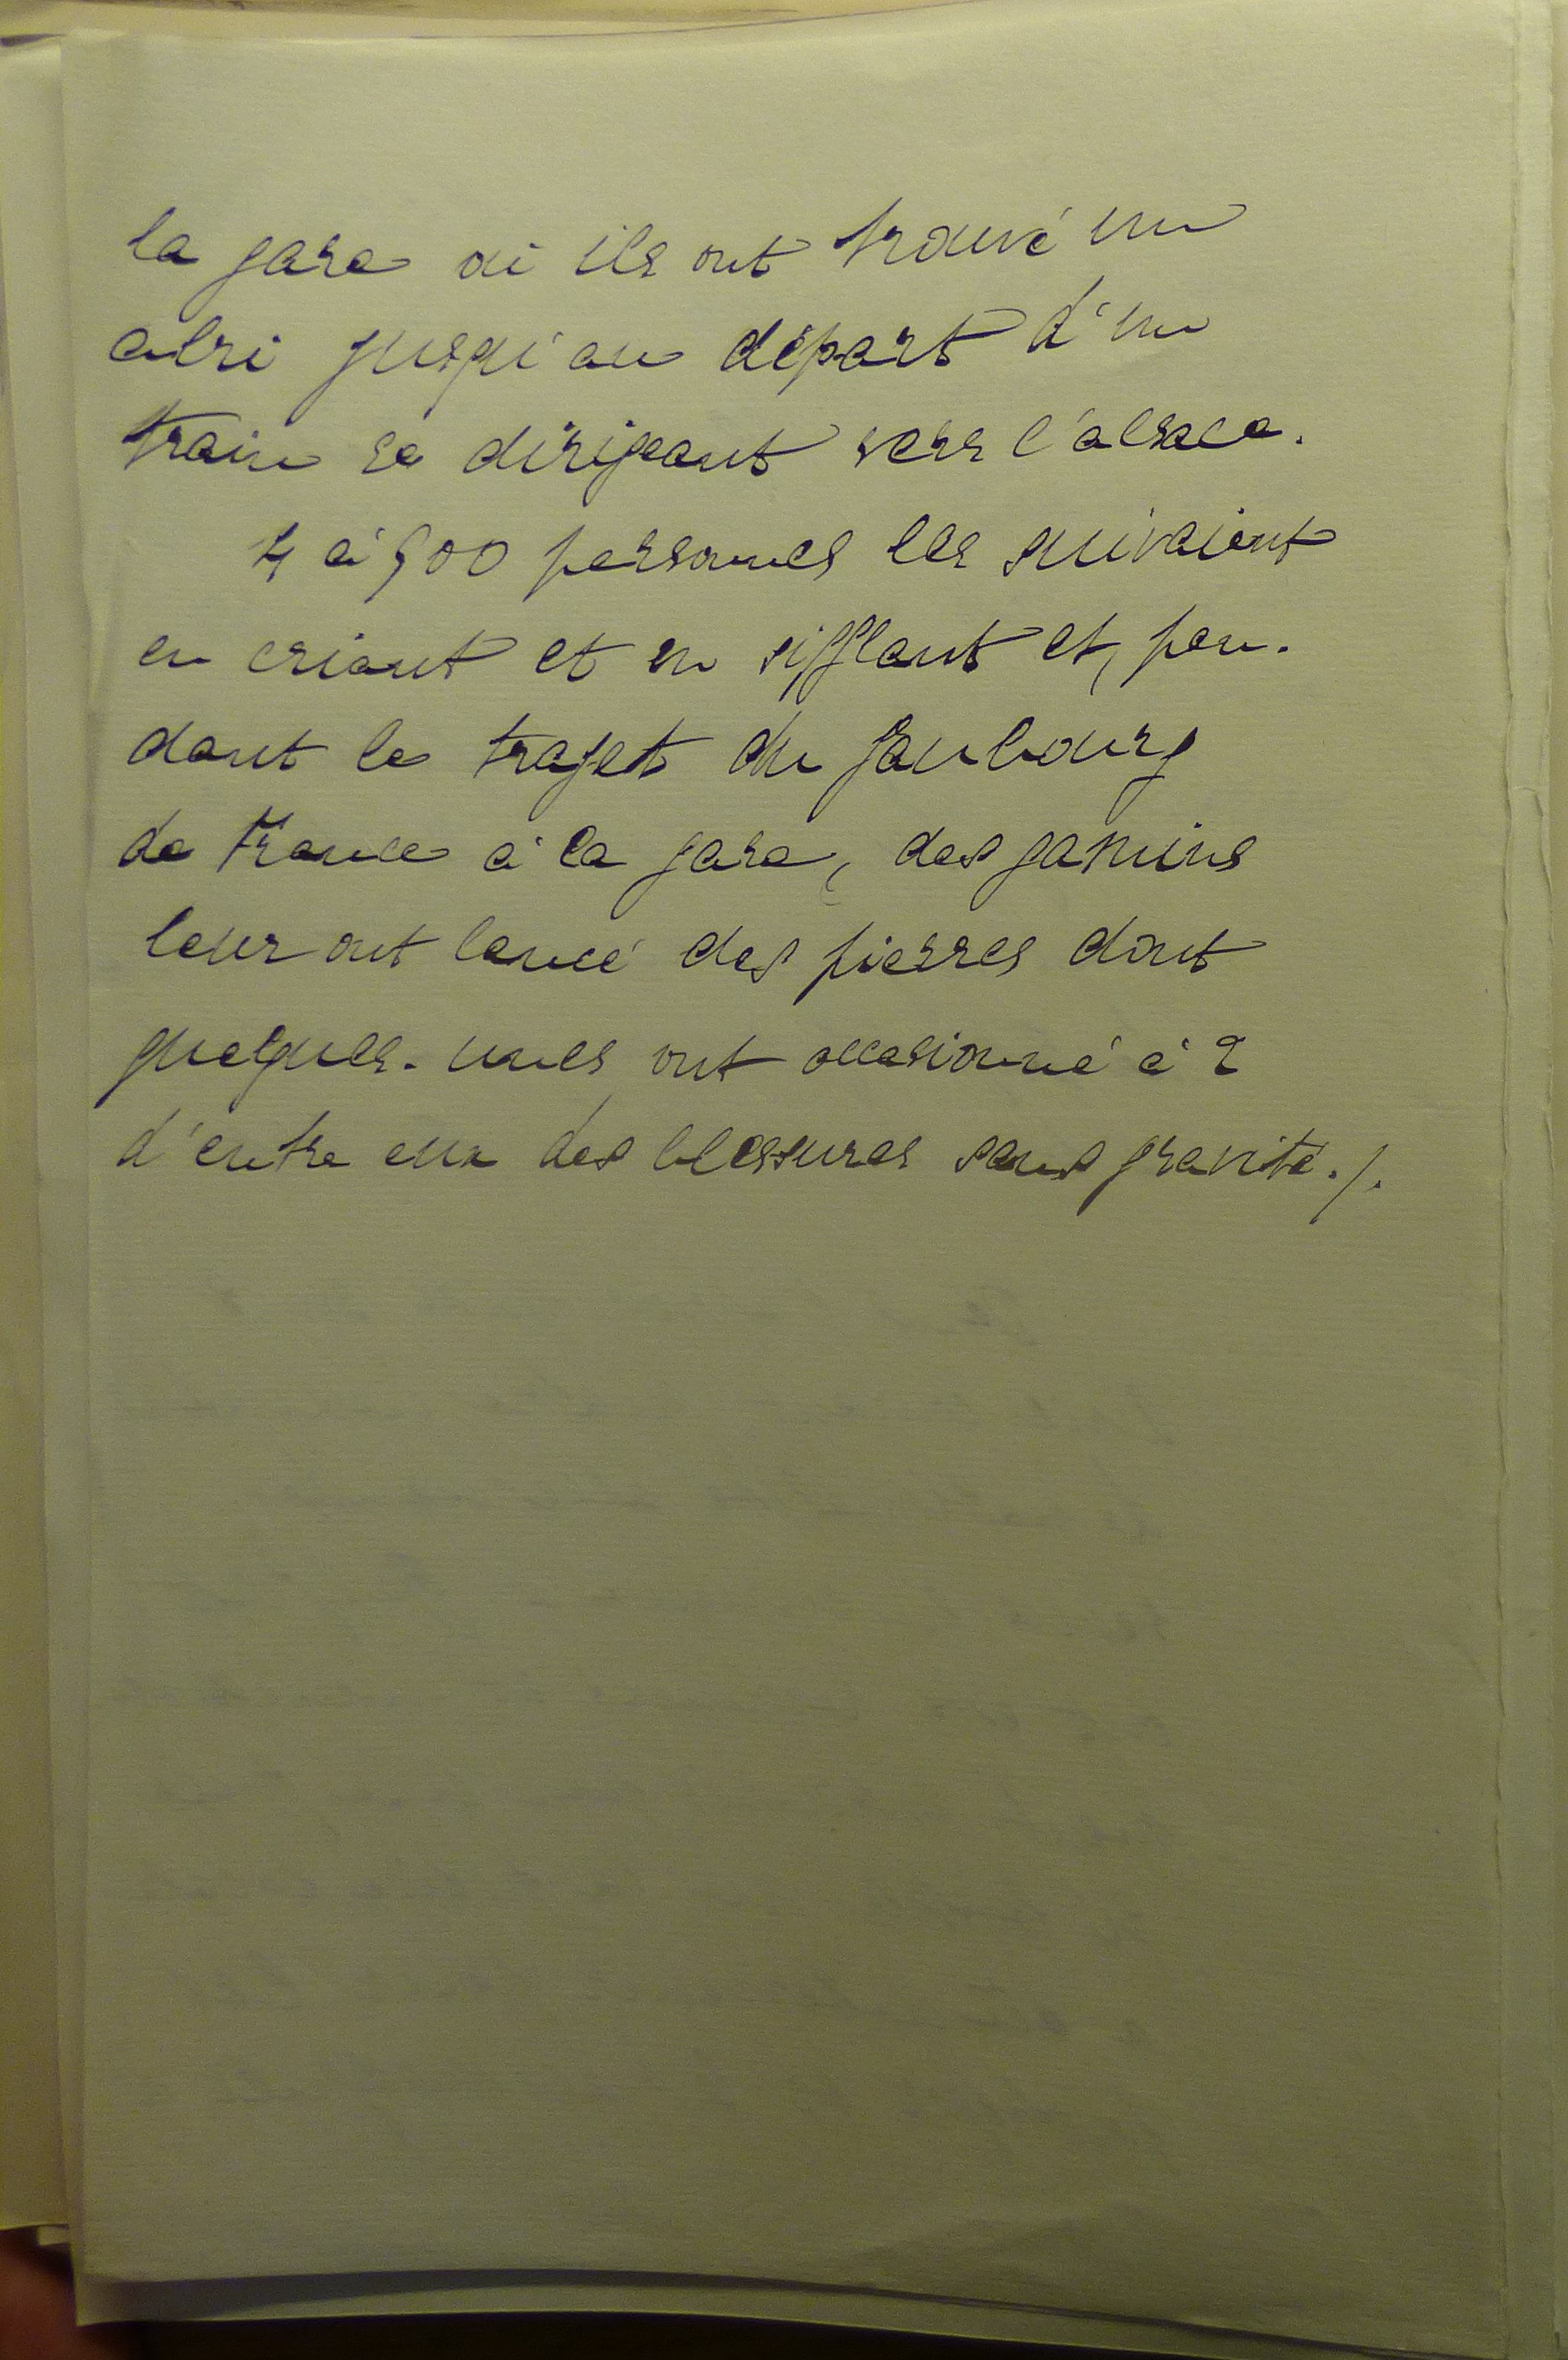 la gare où ils ont trouvé un
abri jusqu'au départ d'un
train se dirigeant vers l'alsace.
4 à 500 personnes les suivaient
en criant et en sifflant et, pen-
dant le trajet du faubourg
de France à la gare, des gamins
leur ont lancé des pierres dont
quelques-unes ont occasionné à 2
d'entre eux des blessures sans gravité./.